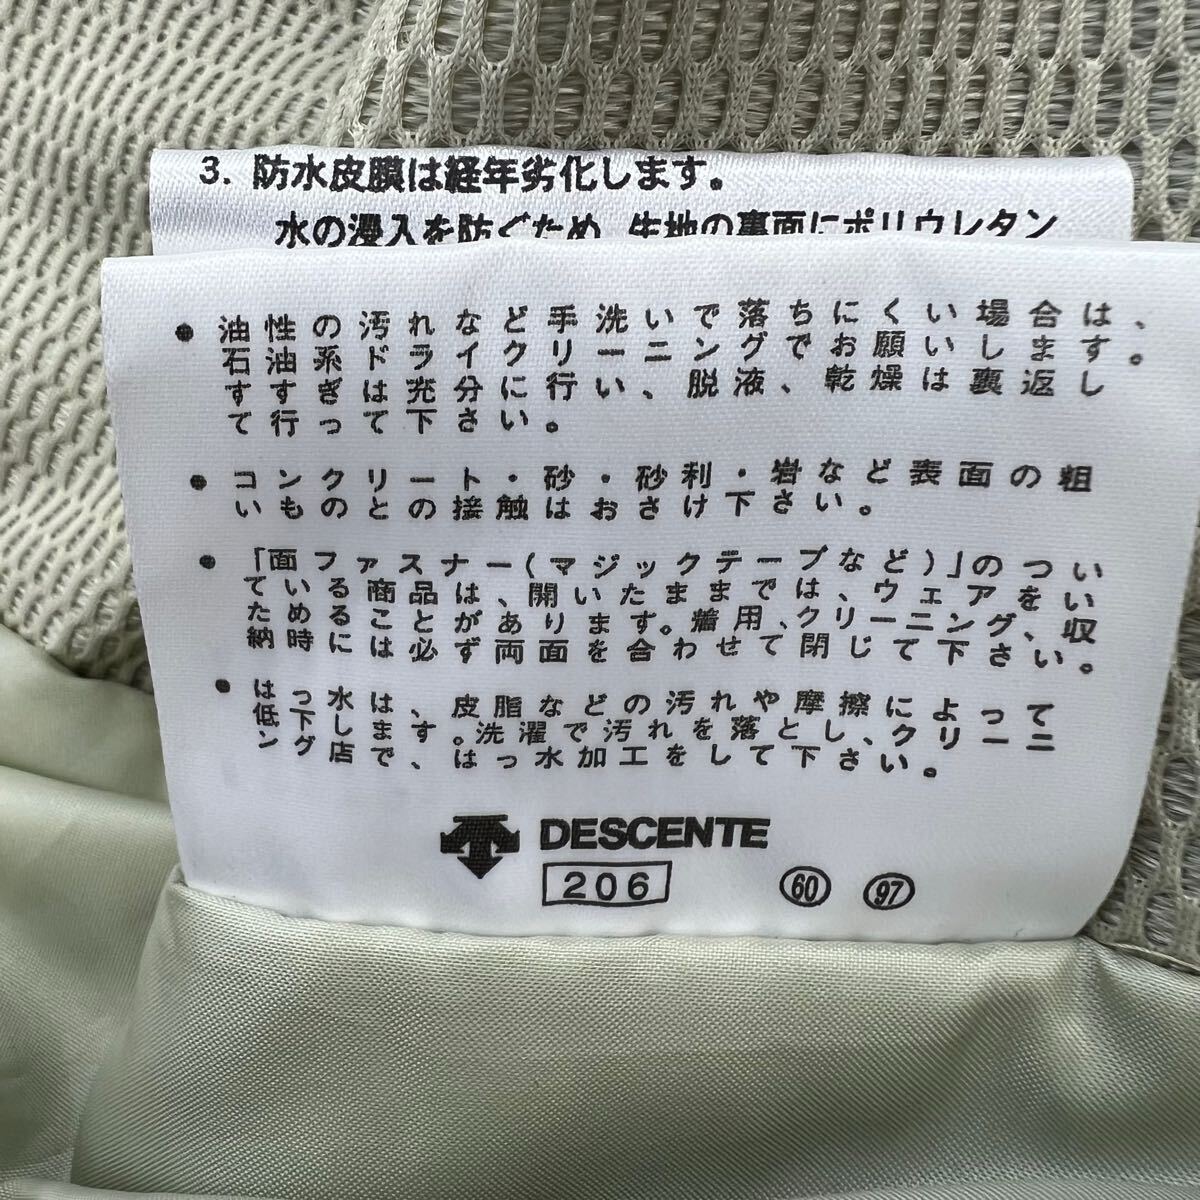 3. 防水皮膜は経年劣化します。
水の浸入を防ぐため、生地の裏面にポリウレタン
• 油性の汚れなど手洗いで落ちにくい場合は、
石油系ドライクリーニングでお願いします。
すすぎは充分に行い、脱液、乾燥は裏返し
て行って下さい。
• コンクリート・砂・砂利・岩など表面の粗
いものとの接触はおさけ下さい。
• 「面ファスナー(マジックテープなど)」のつい
ている商品は、開いたままでは、ウェアをい
ためることがあります。着用、クリーニング、収
納時には必ず両面を合わせて閉じて下さい。
• はっ水は、皮脂などの汚れや摩擦によって
低下します。洗濯で汚れを落とし、クリーニ
ング店で、はっ水加工をして下さい。
DESCENTE
206 60 97